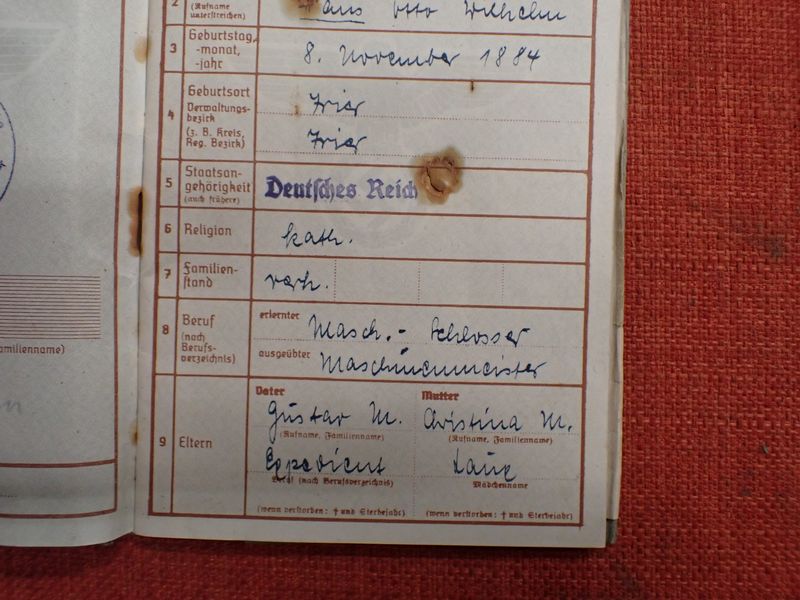 2 (Rufname unterstreichen) Hans Otto Wilhelm
3 Geburtstag, -monat, -jahr 8. November 1884
4 Geburtsort Trier
Verwaltungsbezirk (z. B. Kreis, Reg. Bezirk) Trier
5 Staatsangehörigkeit (auch frühere) Deutsches Reich
6 Religion kath.
7 Familienstand verh.
8 Beruf (nach Berufsverzeichnis) erlernter Masch.- Schlosser
ausgeübter Maschinenmeister
9 Eltern
Vater Mutter
Gustav M. Christina M.
(Rufname, Familienname) (Rufname, Familienname)
Expedient
Beruf (nach Berufsverzeichnis) Mädchenname
(wenn verstorben: † und Sterbejahr) (wenn verstorben: † und Sterbejahr)
amilienname)